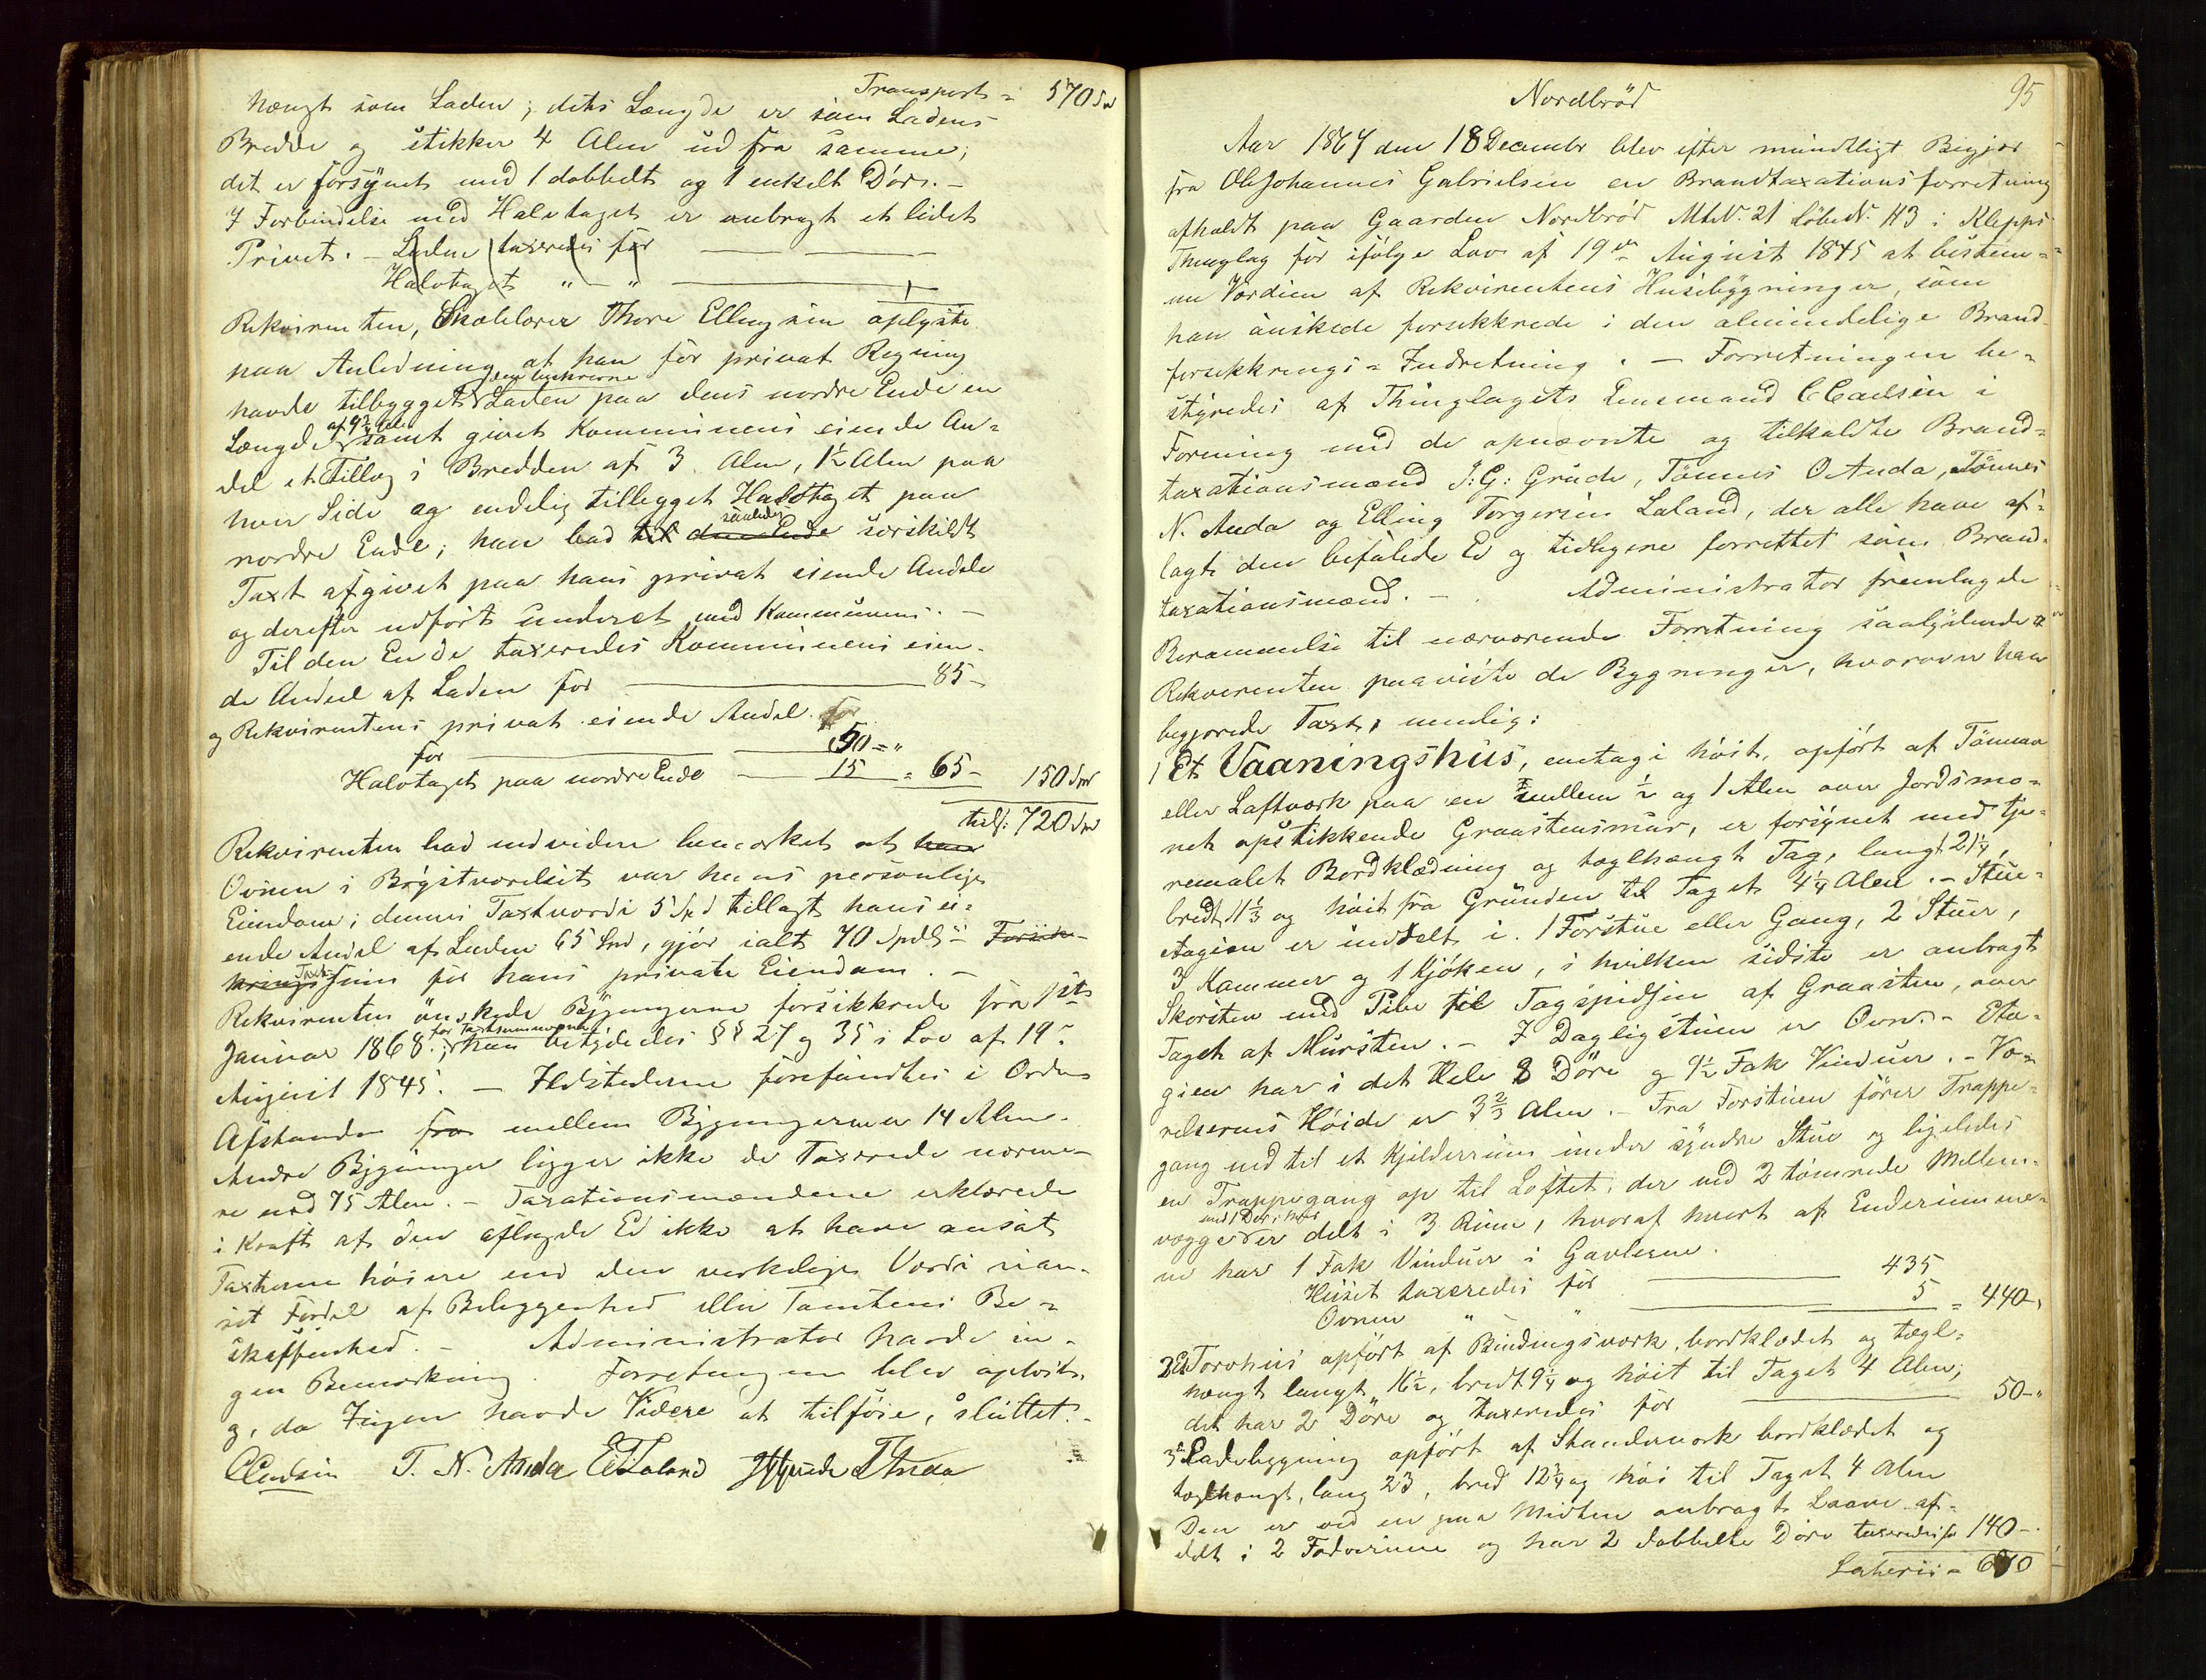 Transport = 570 Spd
hængt som Laden; dets Længde er som Ladens
Bredde og stikker 4 Alen ud fra samme;
det er forsynet med 1 dobbelt og 1 enkelt Dør. –
I Forbindelse med Halvtaget er anbragt et lidet
Privet. – Laden taxeredes for
Halvtaget " – "
Rekvirenten, Skolelærer Thore Ellingsen oplyste
paa Anledning at han for privat Regning
havde tilbygget Laden paa dens nordre Ende en
Længde af 9¾ Alen samt givet Kommunens eiende An=
del et Tillæg i Bredden af 3 Alen, 1½ Alen paa
hver Side og endelig tillegget Halvtaget paa
nordre Ende; han bad til den Ende saaledes særskildt
Taxt afgivet paa hans privat eiende Andele
og derefter udført underet med Kommunens. –
Til den Ende taxeredes Kommunens eien-
de Andeel af Laden for 85 –
og Rekvirentens privat eiende Andel for
for 50 = "
Halvtaget paa nordre Ende 15 = 65 – 150 Spd
tils. 720 Spd
Rekvirenten bad endvidere bemærket at han
Ovnen i Brystværelset var hans personlige
Eiendom; dennes Taxtværdi 5 Spd tillagt hans ei=
ende Andel af Laden 65 Spd, gjør ialt 70 Spdlr – Forsik-
krings Taxt Sum for hans private Eiendom. –
Rekvirenten ønskede Bygningerne forsikkrede fra 1ste
Januar 1868 for Taxtsummerne; han betydedes §§ 27 og 35 i Lov af 19.
August 1845. – Ildstederne forefandtes i Orden
Afstanden fra mellem Bygningerne er 14 Alen.
Andre Bygninger ligger ikke de Taxerede nærme-
re end 75 Alen. – Taxationsmændene erklærede
i Kraft af den aflagde Ed ikke at have ansat
Taxterne høiere end den verkelige Værdi uan-
set Fordel af Beliggenhed eller Tomtens Be=
skaffenhed. – Administrator havde in-
gen Bemærkning. Forretningen blev oplæst
og, da Ingen havde Videre at tilføie, sluttet. –
CCarlsen T. N. Anda ETLaland JGGrude TAnda
95
Nordbrød
Aar 1867 den 18 December blev efter mundtligt Begjær
fra Ole Johannes Gabrielsen en Brandtaxationsforretning
afholdt paa Gaarden Nordbrød Mt. N. 21 Løbe N. 113 i Klepps
Thinglag for ifølge Lov af 19de August 1845 at bestem=
me Værdien af Rekvirentens Husebygninger, som
han ønskede forsikkrede i den almindelige Brand-
forsikkrings = Indretning. – Forretningen be=
styredes af Thinglagets Lensmand CCarlsen i
Forening med de opnævnte og tilkaldte Brand=
taxationsmænd J: G: Grude, Tønnes O Anda, Tønnes
N. Anda og Elling Torgersen Laland, der alle have af=
lagt den befalede Ed og tidligere forrettet som Brand-
taxationsmænd. – Administrator fremlagde
Berammelse til nærværende Forretning saalydende #
Rekvirenten paaviste de Bygninger, hvorover han
begjærede Taxt, nemlig:
1 Et Vaaningshus, enetage høit, opført af Tømmer
eller Laftværk paa en mellem ½ og 1 Alen over Jordsmo=
net opstikkende Graastensmur, er forsynet med tje=
remalet Bordklædning og tæglhængt Tag, langt 21¼,
bredt 11⅓ og høit fra Grunden til Taget 4¼ Alen. – Stue=
etagien er inddelt i 1 Forstue eller Gang, 2 Stuer,
3 Kammer og 1 Kjøken, i hvilken sidste er anbragt
Skorsten med Pibe til Tagspidsen af Graasten, over
Taget af Mursten. – I Dagligstuen er Ovn. – Eta=
gien har i det Hele 8 Døre og 9½ Fak Vinduer. – Væ=
relsernes Høide er 3⅔ Alen. – Fra Forstuen fører Trappe=
gang ned til et Kjelderrum under syndre Stue og ligeledes
en Trappegang op til Loftet, der ved 2 tømrede Mellem=
vægge med 1 Dør i hver er delt i 3 Rum, hvoraf hvert af Enderumme=
ne har 1 Fak Vinduer i Gavlerne.
Huset taxeredes for 435
Ovnen " " 5 = 440 ,
2 Et Torvhus opført af Bindingsværk, bordklædet og tægl=
hængt langt 16½, bredt 9¼ og høit til Taget 4 Alen;
det har 2 Døre og taxeredes for 50 – "
3 En Ladebygning opført af Standerverk bordklædet og
tæglhængt, lang 23, bred 12¾ og høi til Taget 4 Alen
Den er ved en paa Midten anbragt Laave af=
delt i 2 Foderrum og har 2 dobbelte Døre taxeredes for 140 –
Lateris = 630